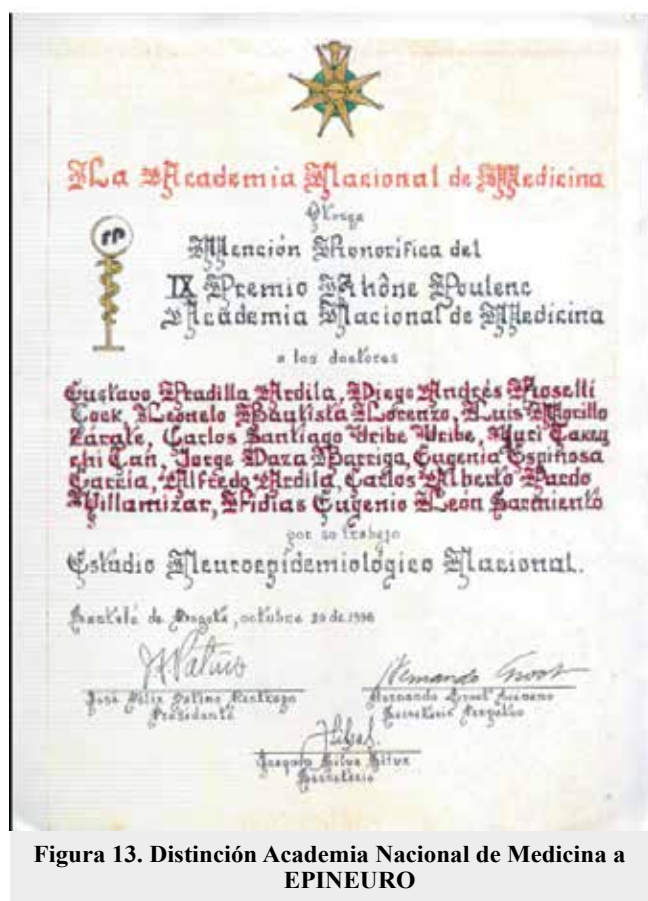 La Academia Nacional de Medicina
Otorga
rp
Mención Honorífica del
IX Premio Rhône Poulenc
Academia Nacional de Medicina
a los doctores
Gustavo Pradilla Ardila, Diego Andrés Roselli
Cock, Leonelo Bautista Lorenzo, Luis Morillo
Zárate, Carlos Santiago Uribe Uribe, Yuri Takeu
chi Tan, Jorge Daza Barriga, Eugenia Espinosa
García, Alfredo Ardila, Carlos Alberto Pardo
Villamizar, Fidias Eugenio León Sarmiento
por su trabajo
Estudio Neuroepidemiológico Nacional.
Santafé de Bogotá, octubre de 1996
José Félix Patiño Restrepo
Presidente
Hernando Groot
Secretario Perpetuo
Silva Silva
Secretario
Figura 13. Distinción Academia Nacional de Medicina a
EPINEURO